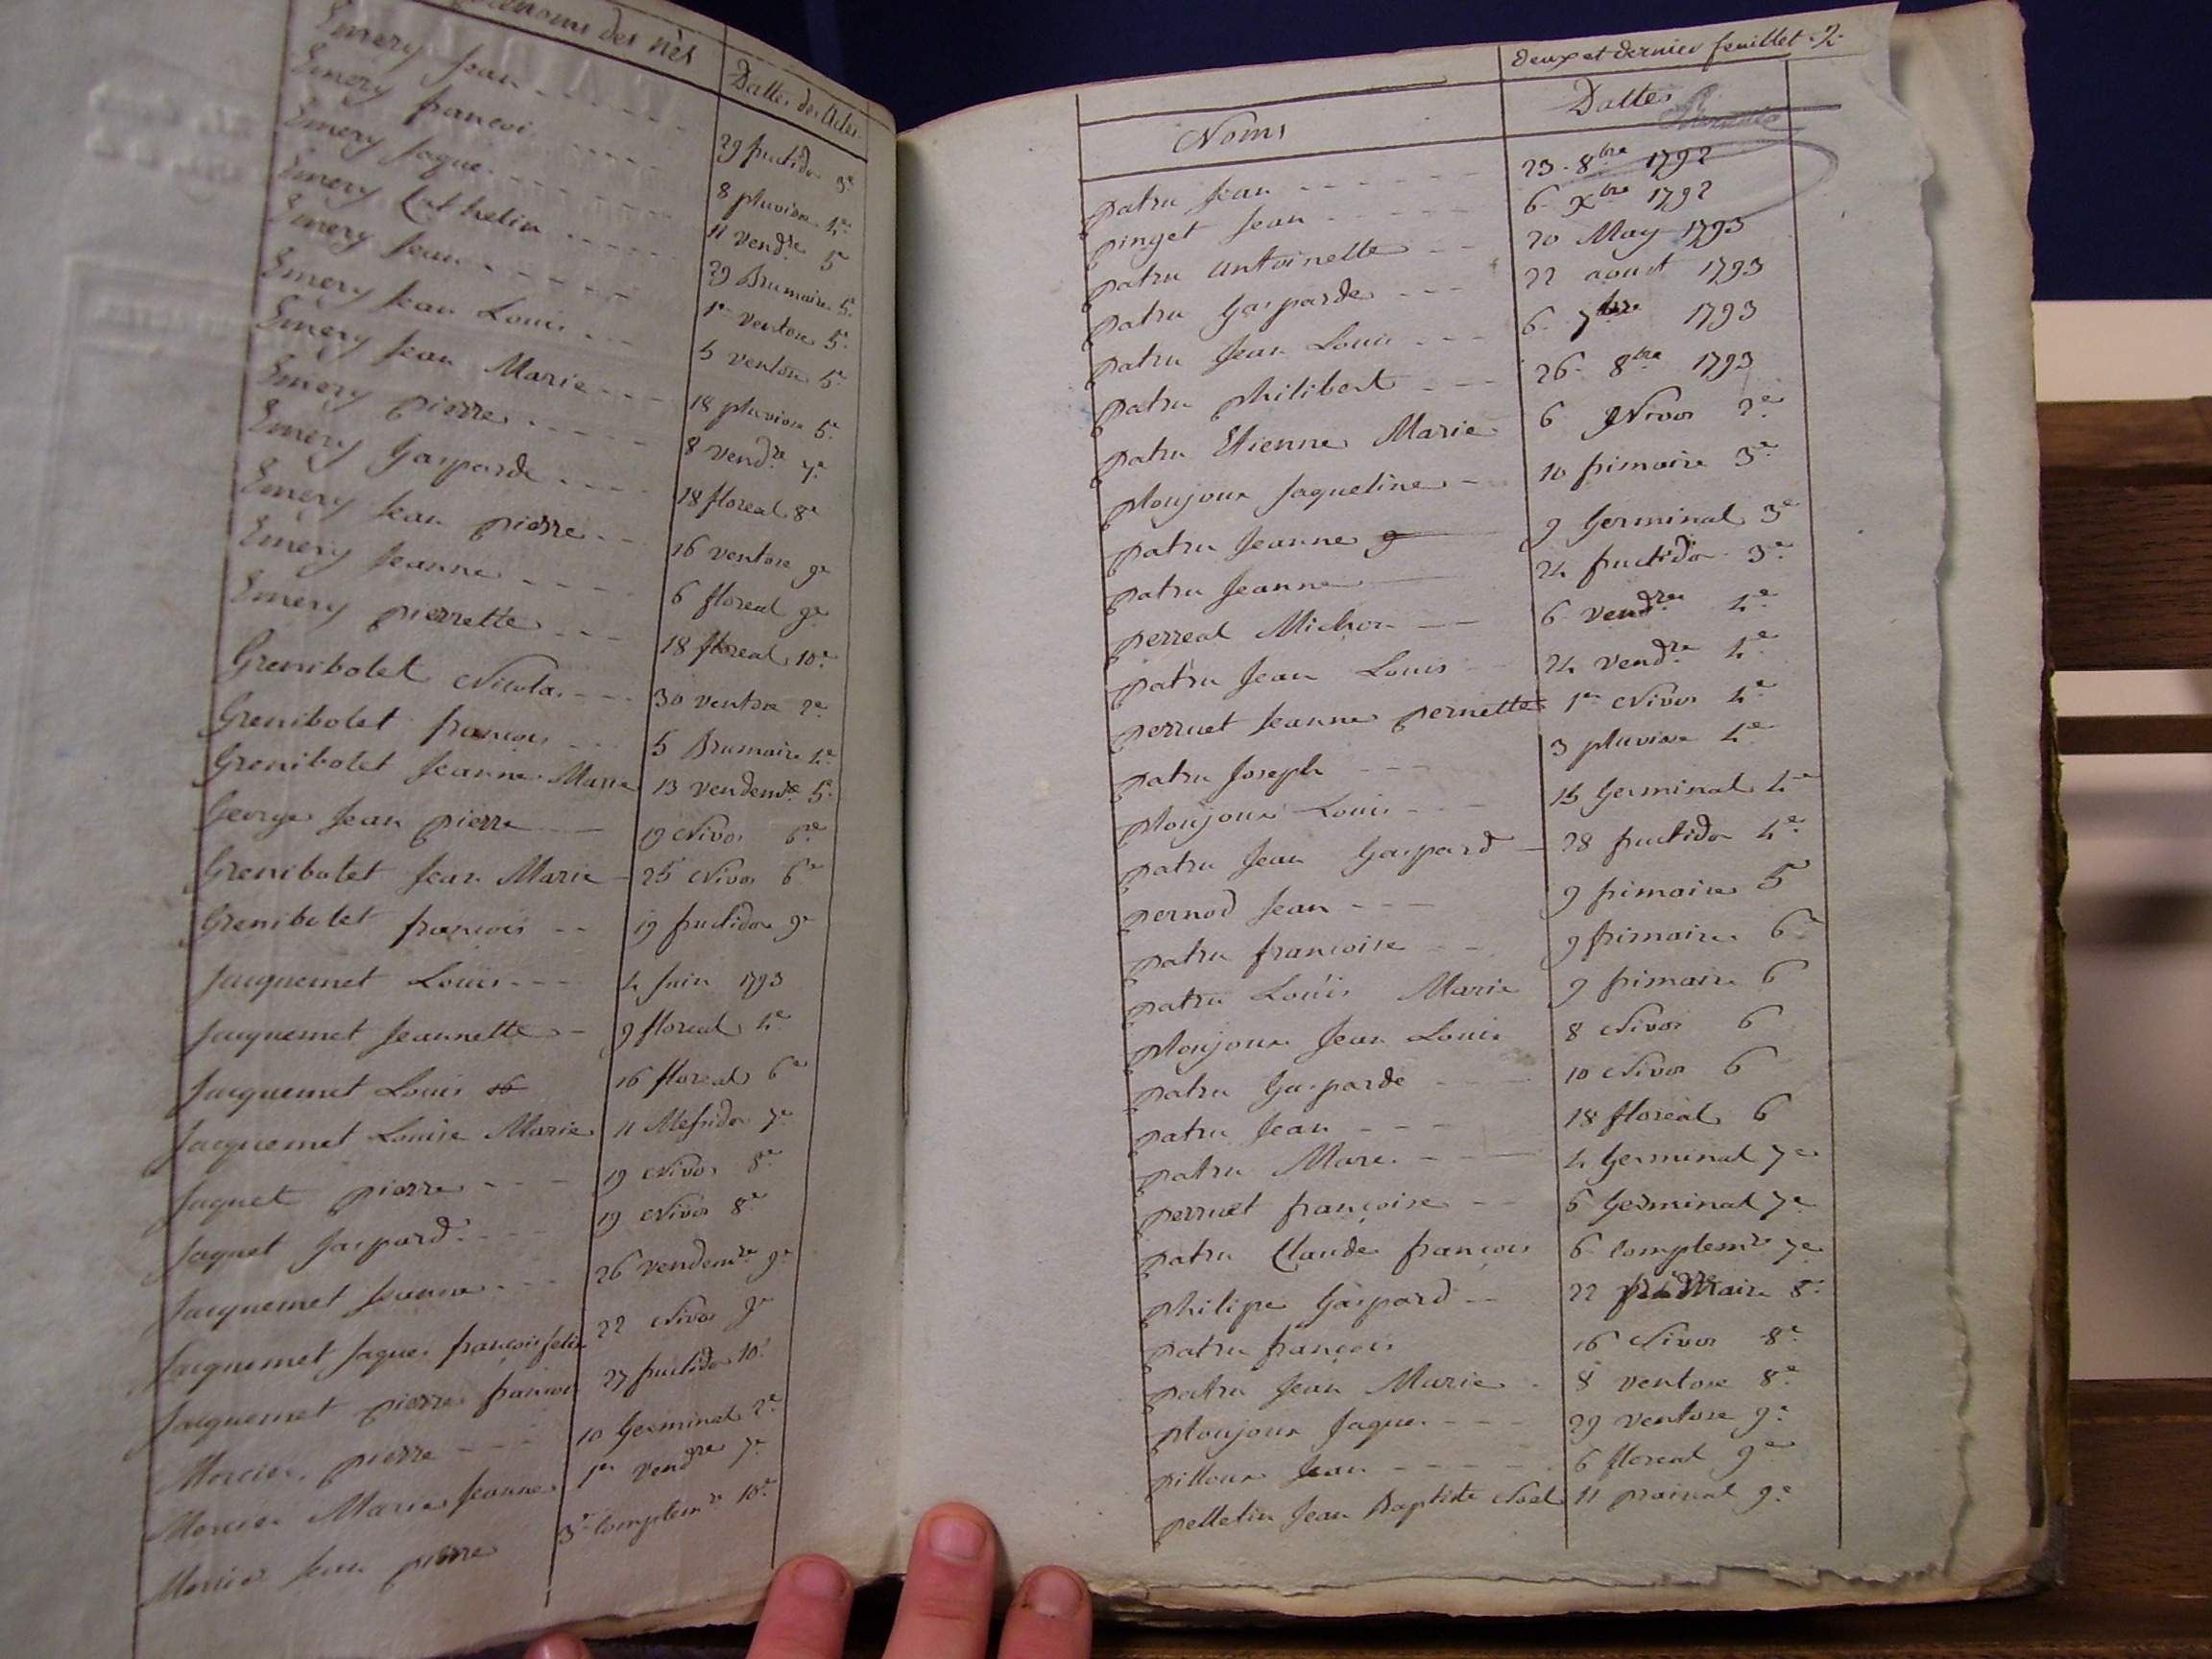 prenoms des nés
Dattes des Actes
Emery Jean 29 fructidor 3e
Emery francois 8 pluviose 4e
Emery Jaque 11 vendre 5
Emery Cathelin 29 Brumaire 5e
Emery Jean 1er ventose 5e
Emery Jean Louis 5 ventose 5e
Emery Jean Marie 18 pluviose 5e
Emery pierre 8 vendre 7e
Emery Gasparde 18 floreal 8e
Emery Jean pierre 16 ventose 9e
Emery Jeanne 6 floreal 9e
Emery pierrette 18 floreal 10e
Grenibolet Nicolas 30 ventose 2e
Grenibolet françois 5 Brumaire 4e
Grenibolet Jeanne Marie 13 vendemre 5e
George Jean pierre 19 Nivos 6e
Grenibolet Jean Marie 25 Nivos 6e
Grenibolet françois 19 fructidor 9e
Jacquemet Louis 4 Juin 1793
Jacquemet Jeannette 9 floreal 4e
Jacquemet Louis 16 floreal 6e
Jacquemet Louise Marie 11 Messidor 7e
Jaquet pierre 19 Nivos 8e
Jaquet Gaspard 19 Nivos 8e
Jacquemet Jeanne 26 vendemre 9e
Jacquemet Jaques françois felix 22 Nivos 9e
Jacquemet pierre francois 27 fructidor 10e
Mercier pierre 10 Germinal 2e
Mercier Marie Jeanne 1er vendre 7e
Mercier Jean pierre 3e complemre 10e
deux et dernier feuillet 2
Noms Dattes
patru Jean 23 8bre 1792
pinget Jean 6 Xbre 1792
patru antoinette 20 May 1793
patru Gasparde 22 aoust 1793
patru Jean Louis 6 7bre 1793
patru philibert 26 8bre 1793
patru Etienne Marie 6 Nivos 2e
ploujoux Jaqueline 10 frimaire 3e
patru Jeanne 9 Germinal 3e
patru Jeanne 24 fructidor 3e
perreal Michon 6 vendre 4e
patru Jean Louis 24 vendre 4e
perruet Jeanne pernette 1er Nivos 4e
patru Joseph 3 pluviose 4e
ploujoux Louis 15 Germinal 4e
patru Jean Gaspard 28 fructidor 4e
pernod Jean 9 frimaire 5
patru francoise 9 frimaire 6e
patru Louis Marie 9 frimaire 6
ploujoux Jean Louis 8 Nivos 6
patru Gasparde 10 Nivos 6
patru Jean 18 floreal 6
patru Marc 4 Germinal 7e
perruet françoise 5 Germinal 7e
patru Claude françois 6 complemre 7e
philipe Gaspard 22 8e
patru françois 16 Nivos 8e
patru Jean Marie 8 ventose 8e
ploujoux Jaque 29 ventose 9e
pilloux Jean 6 floreal 9e
pelletin Jean Baptiste Noel 11 prairial 9e